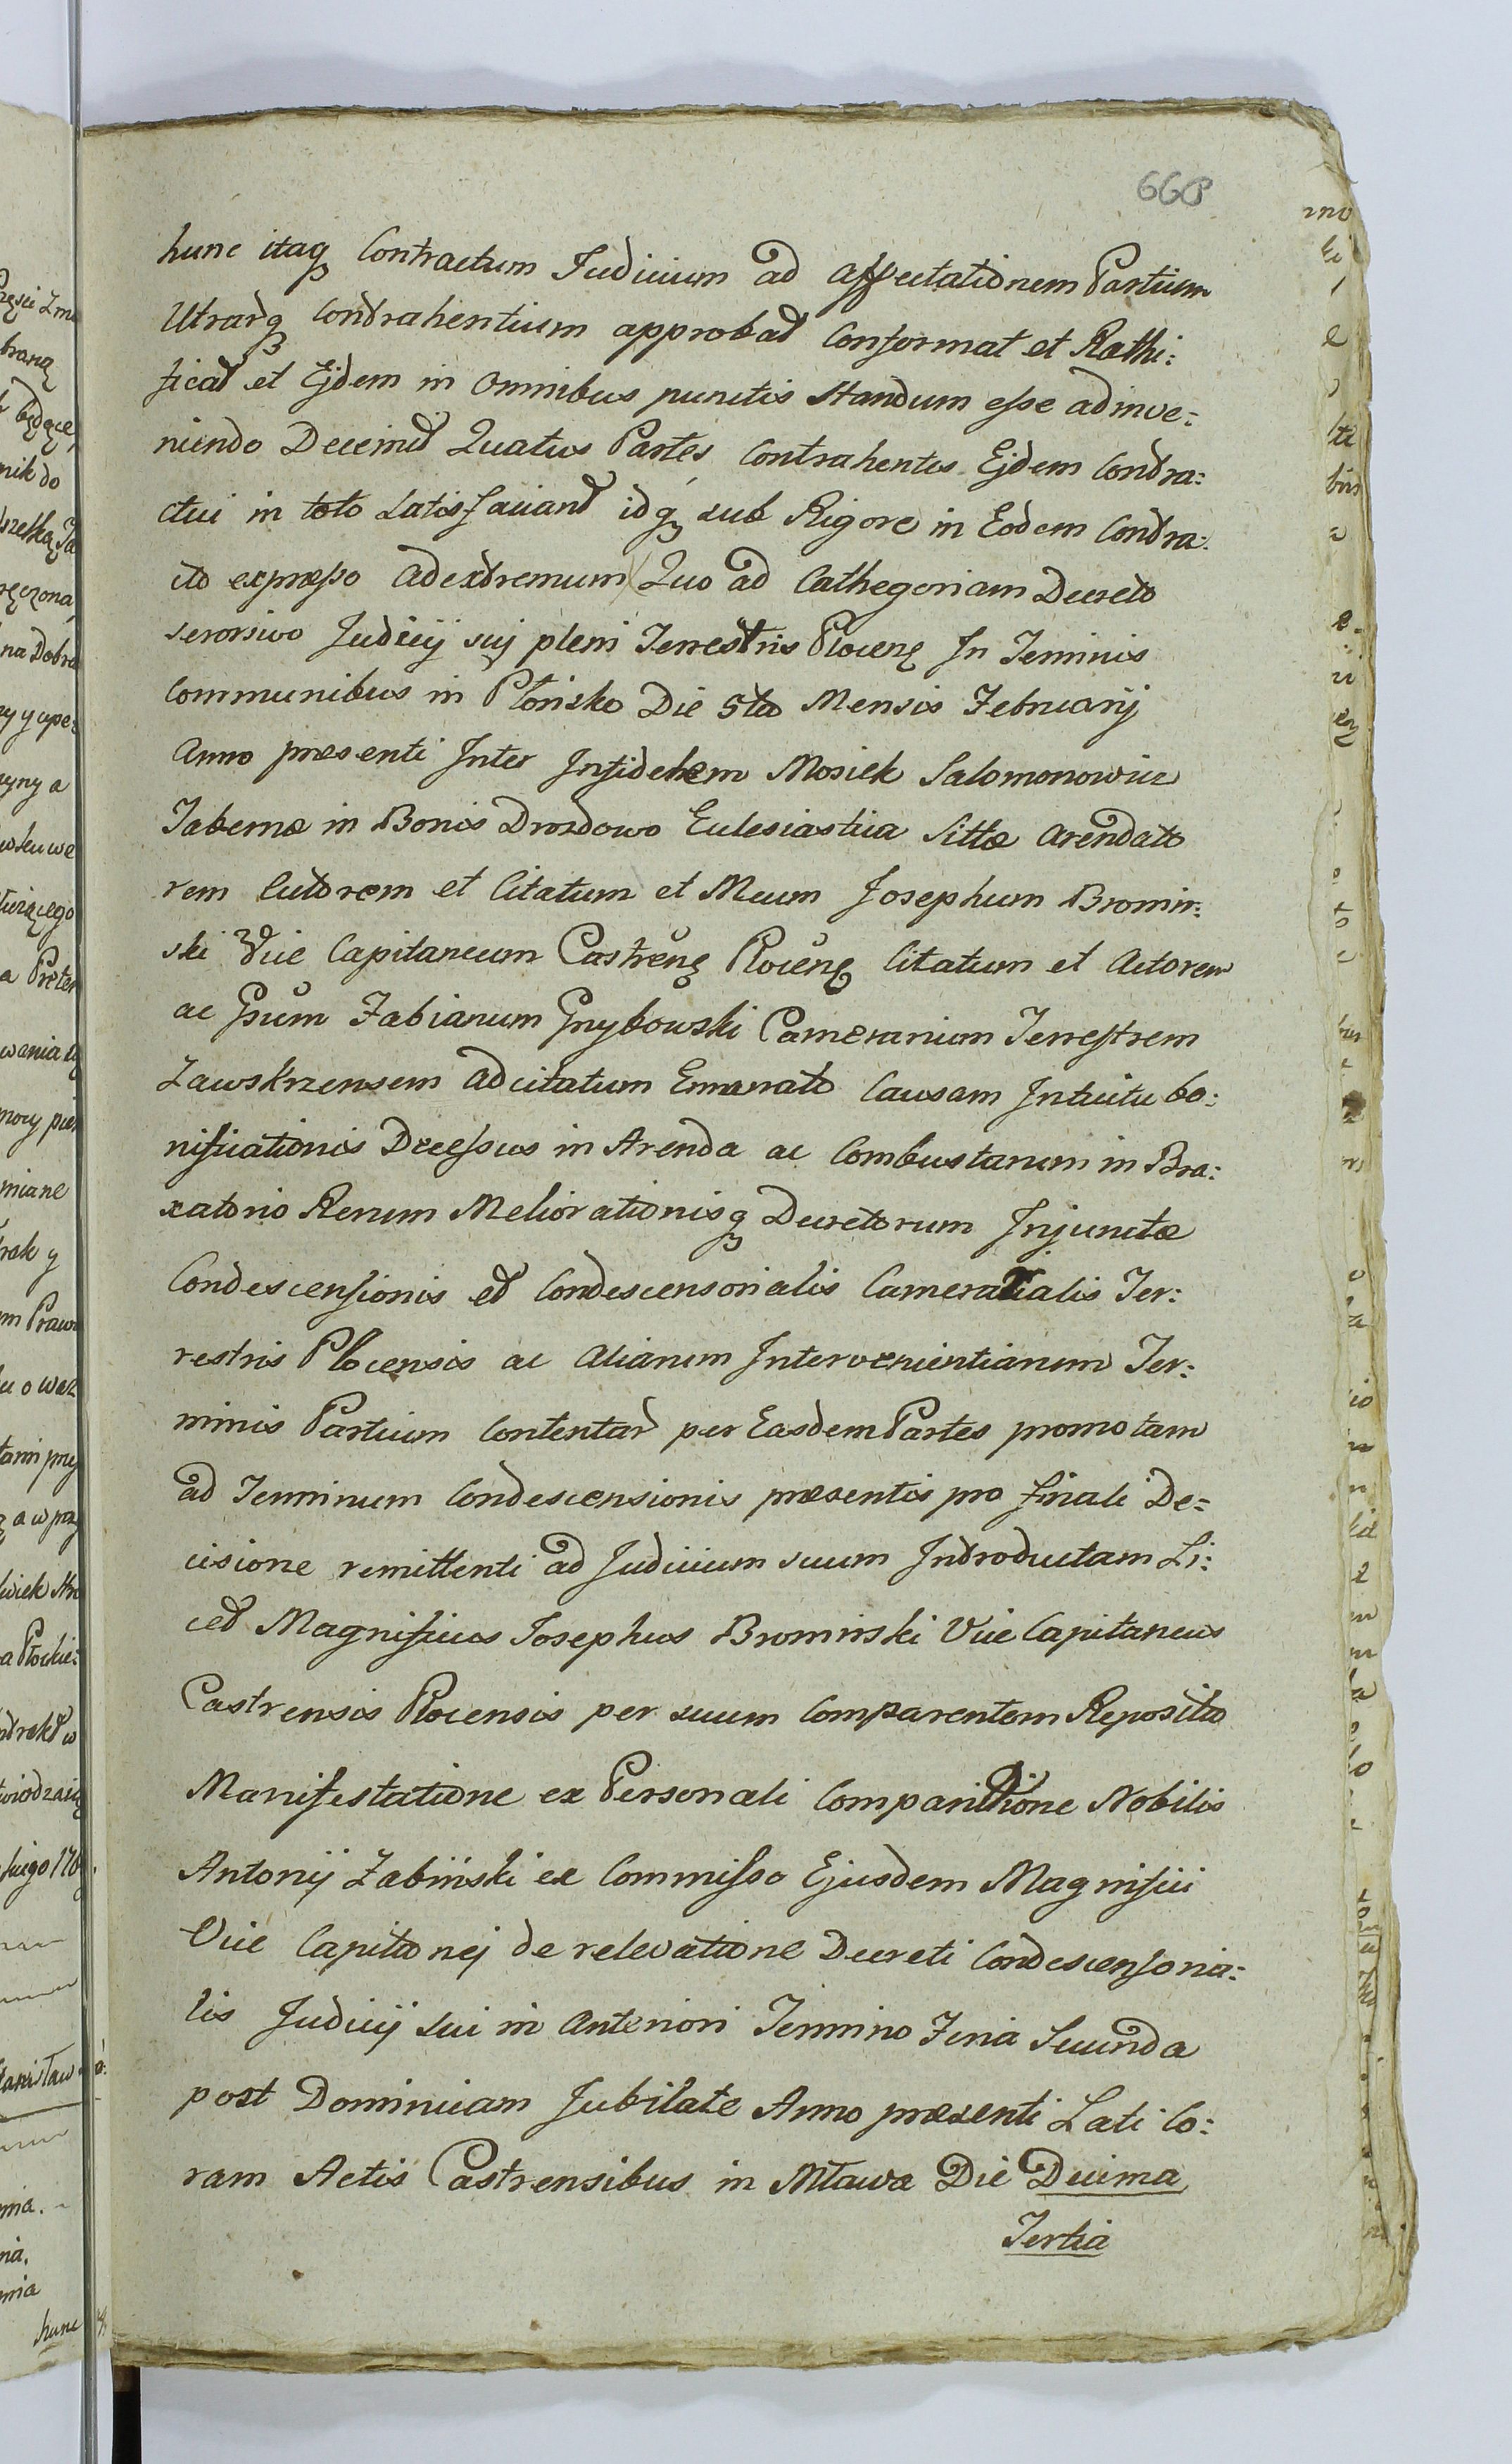 668
hunc itaq Contractum Judicium ad affectationem Partium
Utrarq Contrahentium approbat Conformat et Rathi:
ficat et Ejdem in Omnibus punctis Standum esse adinve:
niendo Decernit Quatus Partes Contrahentes Ejdem Contra:
ctui in toto Satisfaciant idq sub Rigore in Eodem Contra:
cto expresso ad extremum Quo ad Cathegoriam Decreto
serorsivo Judicij sui pleni Terrestris Plocen In Terminis
Communibus in Płońsko Die 5ta Mensis Februarij
Anno praesenti Inter Infidelem Mosiek Salomonowicz
Tabernae in Bonis Drozdowo Ecclesiastica Sittae arendato
rem Actorem et Citatum et Mcum Josephum Bromir:
ski Vice Capitaneum Castren Plocen Citatum et Actorem
ac Gsum Fabianum Grzybowski Camerarium Terrestrem
Zawskrzensem adcitatum Emanato Causam Intuitu bo:
nificationis Decessus in Arenda ac Combustarum in Bra:
xatorio Rerum Meliorationisq Decretorum Injunctae
Condescensionis et Condescensorialis Cameralialis Ter:
restris Plocensis ac aliarum Intervenientiarum Ter:
minis Partium Contentar per Easdem Partes promotam
ad Terminum Condescensionis praesentis pro finali De=
cisione remittenti ad Judicium suum Introductam Li:
cet Magnificus Josephus Bromirski Vice Capitaneus
Castrensis Plocensis per suum Comparentem Reposita
Manifestatione ex Personali Comparitione Nobilis
Antonij Zabiński ex Commisso Ejusdem Magnifici
Vice Capitanej de relevatione Decreti Condescensoria:
lis Judicij sui in anteriori Termino Feria Secunda
post Dominicam Jubilate Anno praesenti Lati Co:
ram Actis Castrensibus in Mława Die Decima
Tertia